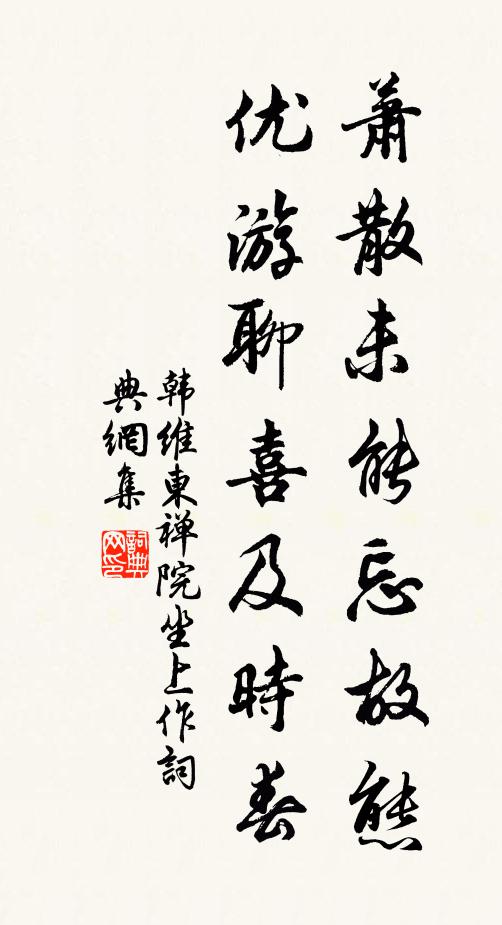 萧散未能忘故態
优游聊喜及時春
韩維東禅院坐上作詞
典網集
詞典网印